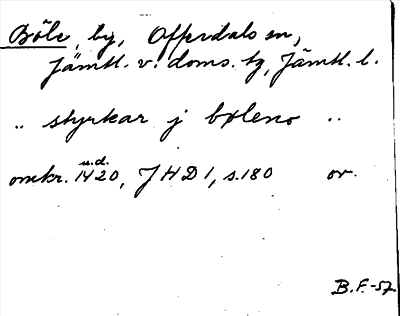 Böle, by, Offerdals sn,
Jämtl. v. doms. tg, Jämtl. l.
.. styrkar j bøleno ..
u.d.
omkr. 1420, JHD 1, s. 180 or.
B.F.-57